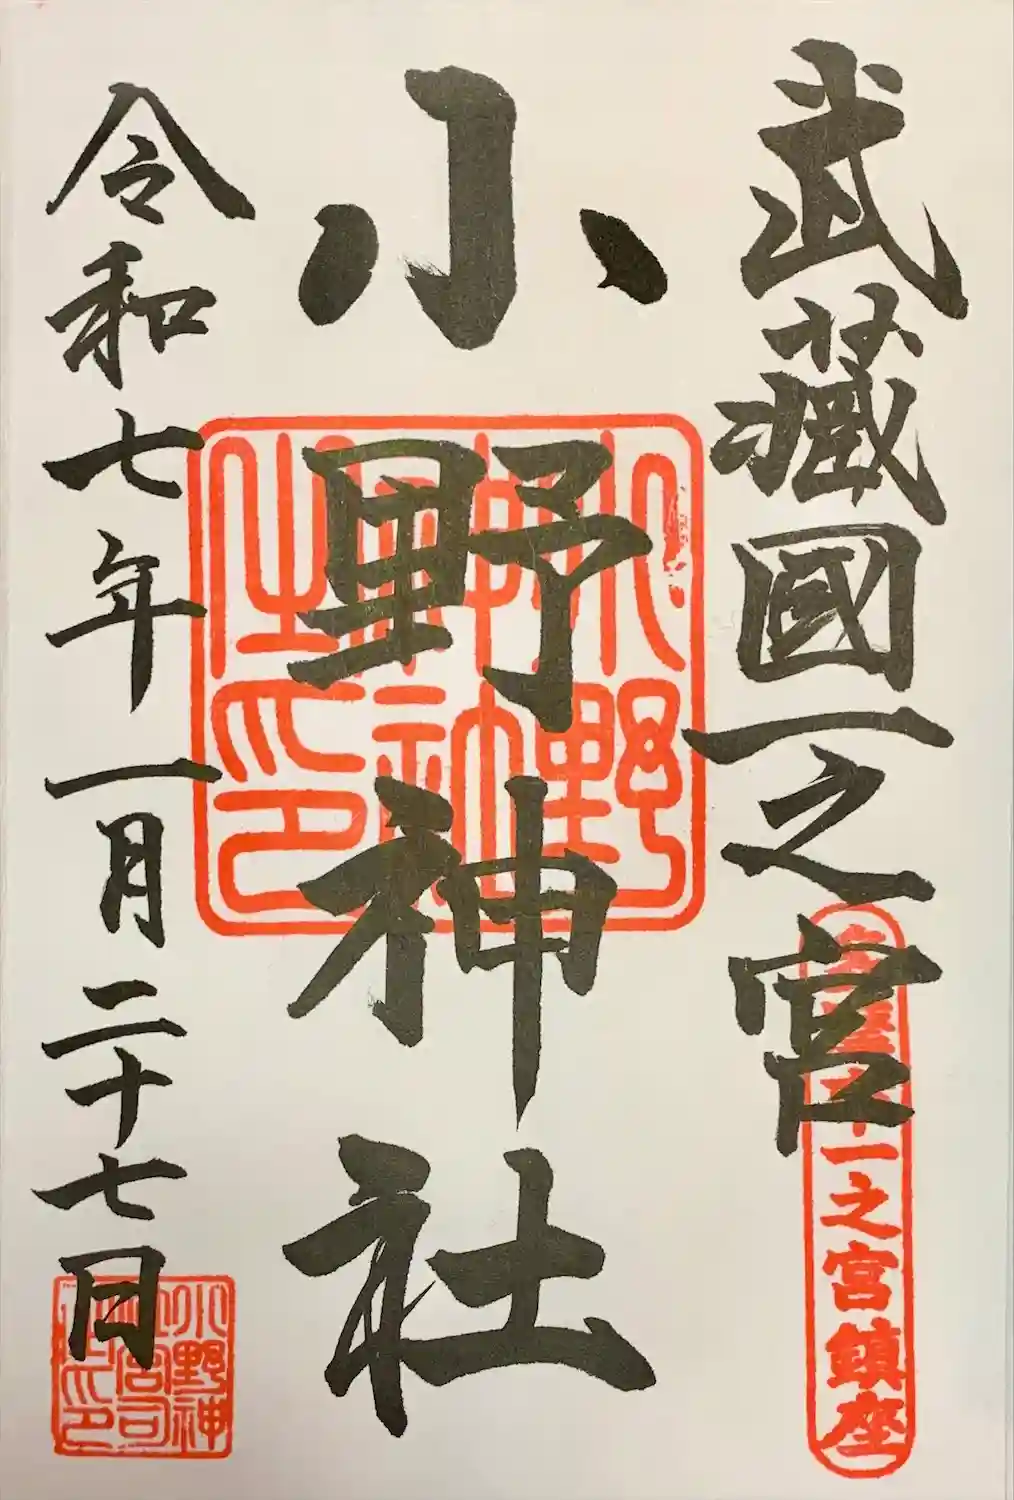 武藏國一之宮
小野神社
令和七年一月二十七日
一之宮鎮座
小野神社之印
小野神
宮司
之印